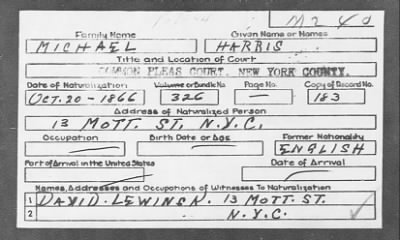 M240
Family Name Given Name or Names
MICHAEL HARRIS
Title and Location of Court
COMMON PLEAS COURT, NEW YORK COUNTY.
Date of Naturalization Volume or Bundle No. Page No. Copy of Record No.
OCT. 20-1866 326 — 183
Address of Naturalized Person
13 MOTT. ST. N.Y.C.
Occupation Birth Date or Age Former Nationality
— — ENGLISH
Port of Arrival in the United States Date of Arrival
— —
Names, Addresses and Occupations of Witnesses To Naturalization
1 DAVID. LEWINSK. 13 MOTT. ST.
2 N.Y.C.